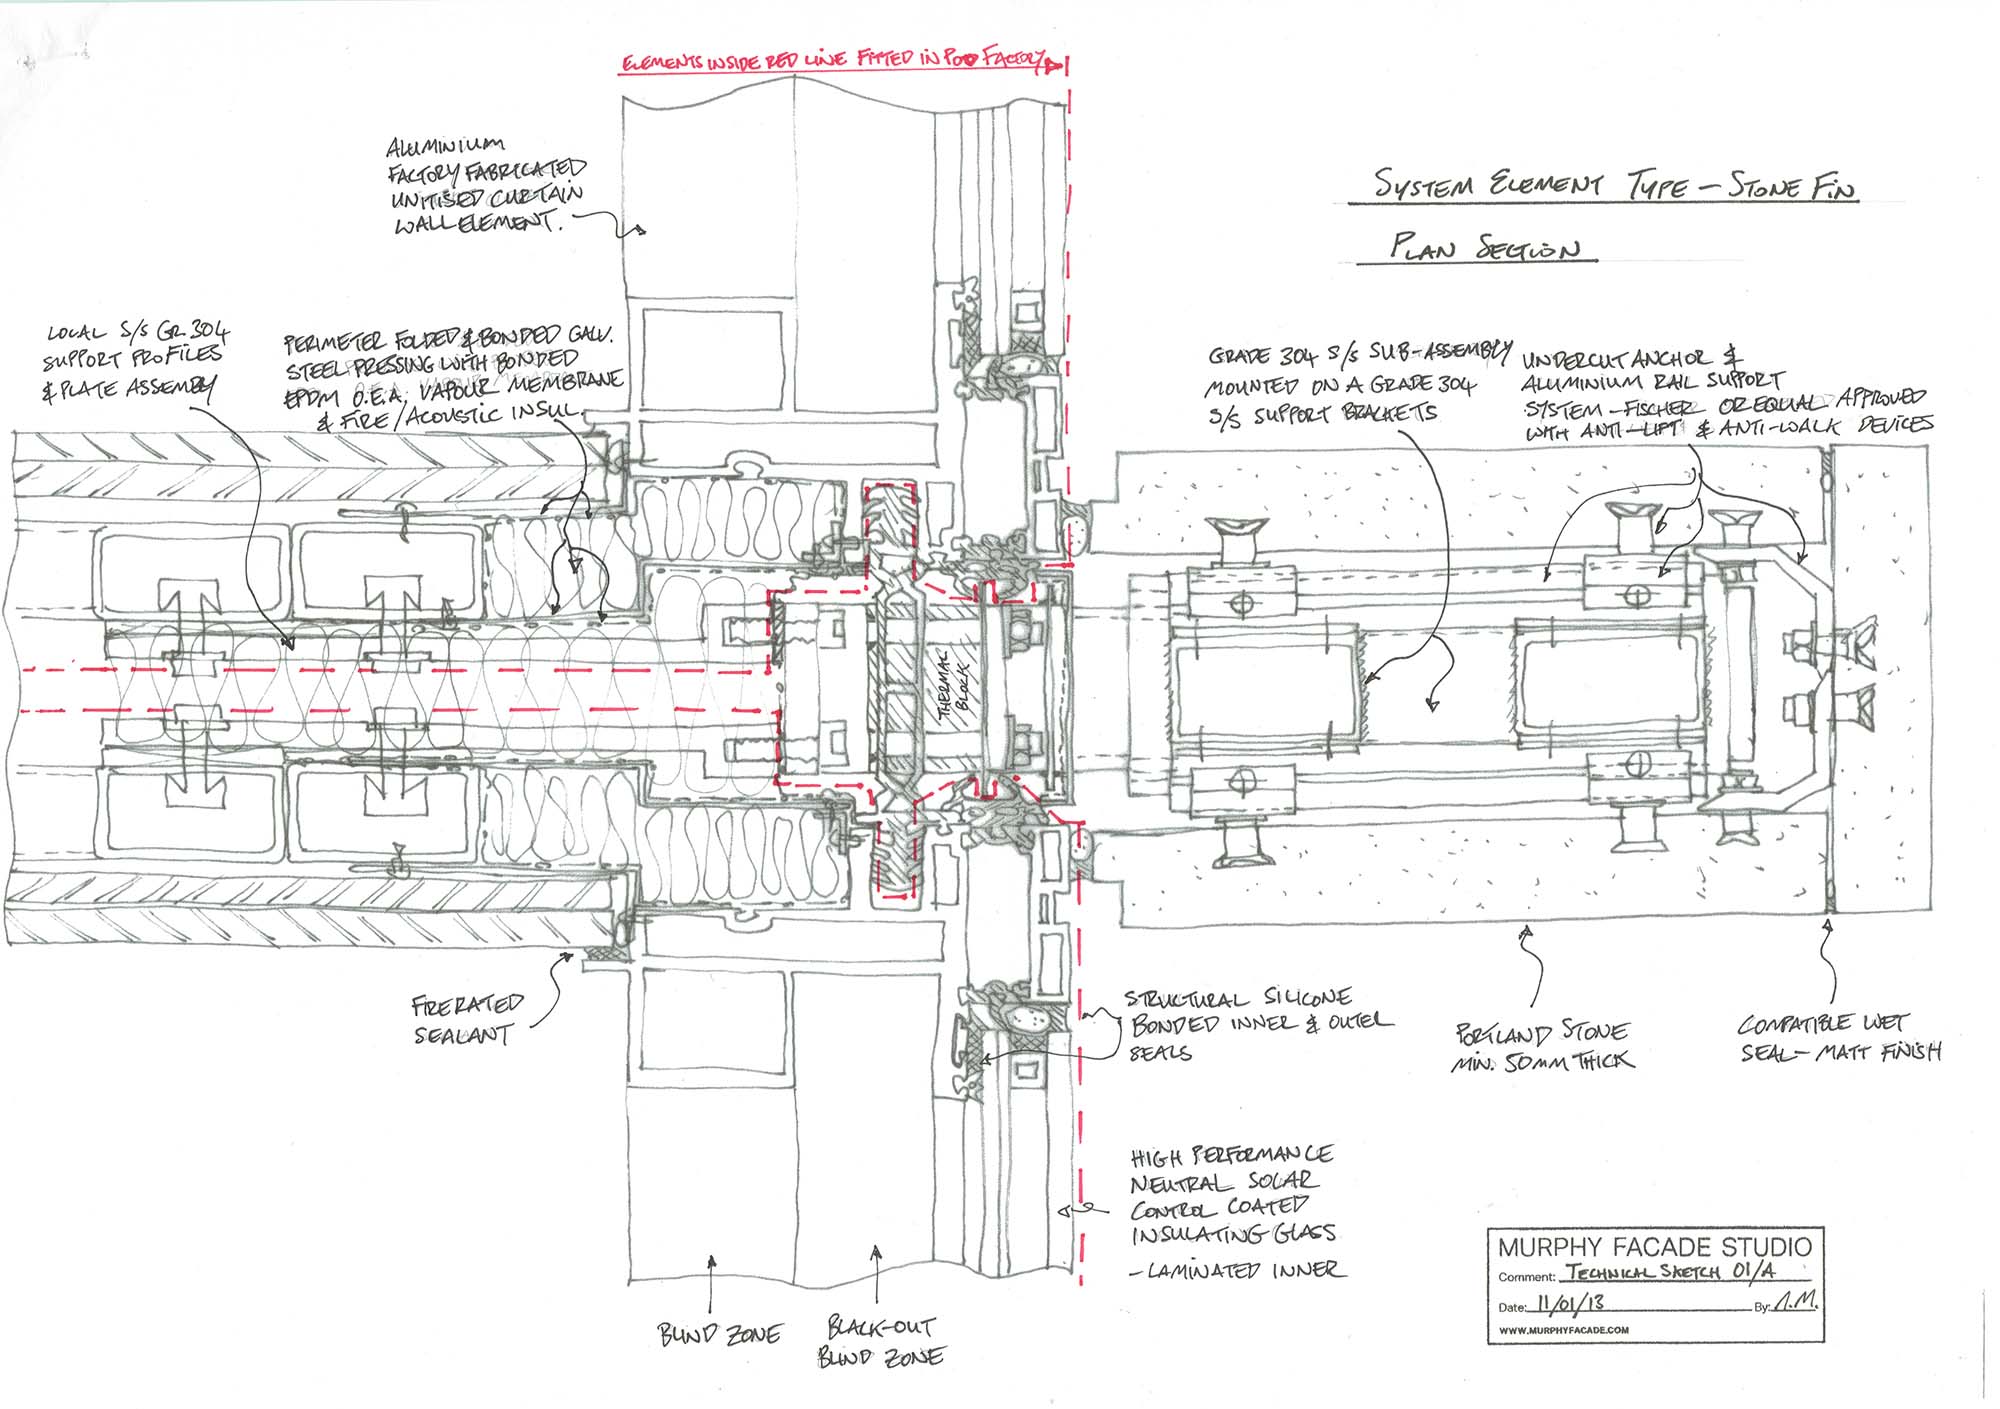 ELEMENTS INSIDE RED LINE FITTED IN POD FACTORY
ALUMINIUM
FACTORY FABRICATED
UNITISED CURTAIN
WALL ELEMENT.
SYSTEM ELEMENT TYPE – STONE FIN
PLAN SECTION
LOCAL S/S GR.304
SUPPORT PROFILES
& PLATE ASSEMBLY
PERIMETER FOLDED & BONDED GALV.
STEEL PRESSING WITH BONDED
EPDM O.E.A. VAPOUR MEMBRANE
& FIRE/ACOUSTIC INSUL.
GRADE 304 S/S SUB-ASSEMBLY
MOUNTED ON A GRADE 304
S/S SUPPORT BRACKETS
UNDERCUT ANCHOR &
ALUMINIUM RAIL SUPPORT
SYSTEM – FISCHER OR EQUAL APPROVED
WITH ANTI-LIFT & ANTI-WALK DEVICES
THERMAL
BLOCK
FIRERATED
SEALANT
STRUCTURAL SILICONE
BONDED INNER & OUTER
SEALS
PORTLAND STONE
MIN. 50MM THICK
COMPATIBLE WET
SEAL – MATT FINISH
HIGH PERFORMANCE
NEUTRAL SOLAR
CONTROL COATED
INSULATING GLASS
– LAMINATED INNER
BLIND ZONE
BLACK-OUT
BLIND ZONE
MURPHY FACADE STUDIO
Comment: TECHNICAL SKETCH 01/A
Date: 11/01/13 By: A.M.
WWW.MURPHYFACADE.COM